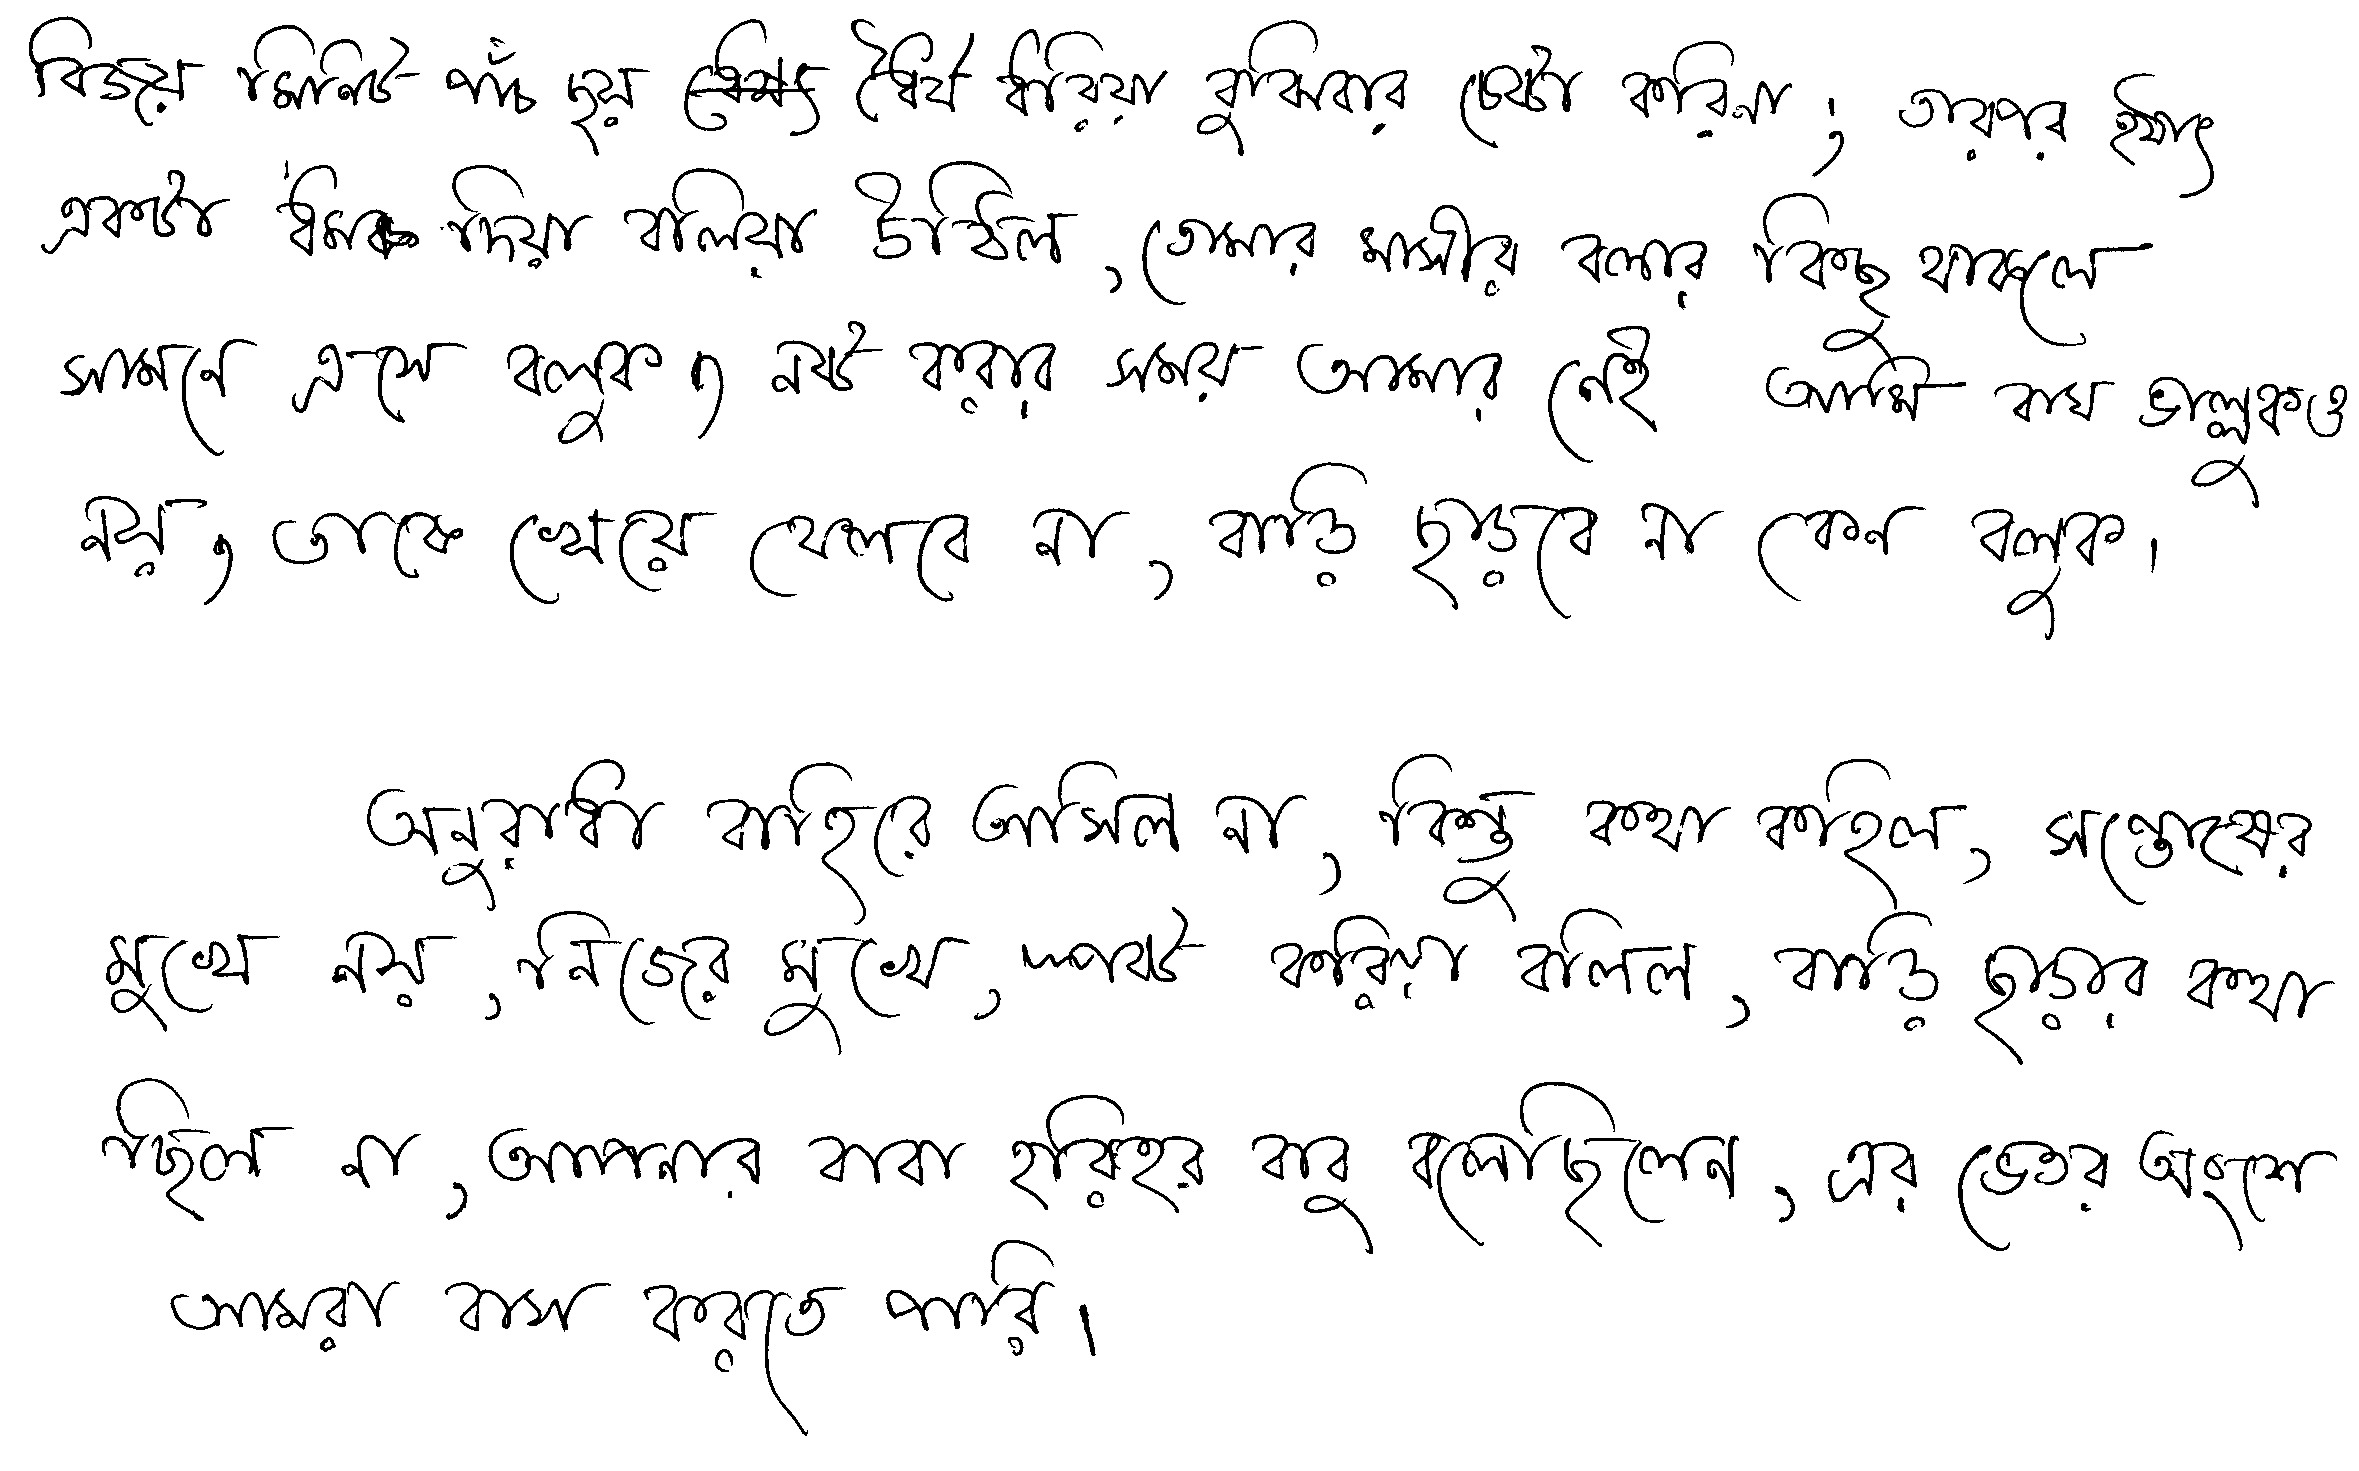 বিজয় মিনিট পাঁচ ছয় ধৈর্য ধরিয়া বুঝিবার চেষ্টা করিলা ; তারপর হঠাৎ
একটা ধমক দিয়া বলিয়া উঠিল , তোমার মাসীর বলার কিছু থাকলে
সামনে এসে বলুক , নষ্ট করার সময় আমার নেই আমি বাঘ ভাল্লুকও
নয় , তাকে খেয়ে ফেলবে না , বাড়ি ছাড়বে না কেন বলুক ।
অনুরাধা বাহিরে আসিল না , কিন্তু কথা কহিল , সন্তোষের
মুখে নয় , নিজের মুখে , স্পষ্ট করিয়া বলিল , বাড়ি ছাড়ার কথা
ছিল না , আপনার বাবা হরিহর বাবু বলেছিলেন , এর ভেতর অংশে
আমরা বাস করতে পারি ।